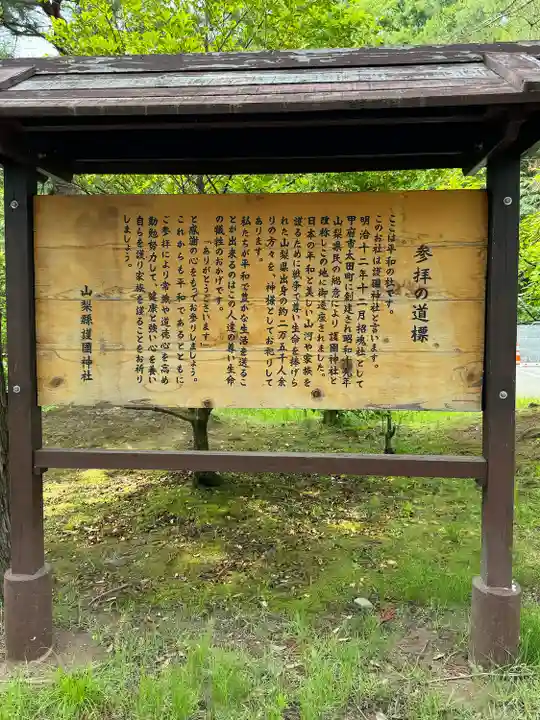 参拝の道標
ここは平和の社です。
このお社は護國神社と言います。
明治十二年十一月招魂社として
甲府市太田町に創建され昭和十九年
山梨県民の総意により護國神社と
改称しこの地に御遷座されました。
日本の平和と美しい山河や家族を
護るために戦争で尊い生命を捧げ
れた山梨県出身の約二万五千人余
りの方々を、神様としてお祀りして
あります。
私たちが平和で豊かな生活を送るこ
とが出来るのはこの人達の尊い生命
の犠牲のおかげです。
「ありがとうございます」
と感謝の心をもってお参りしましょう。
これからも平和であるとともに
ご参拝により常識や道徳心を高め
勤勉努力して、健康と強い心を養い
自らを護り家族を護ることをお祈り
しましょう。
山梨縣護國神社